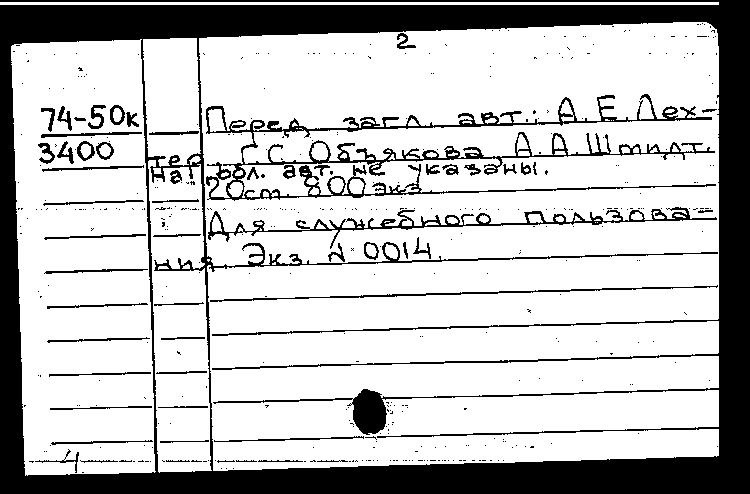 2
74-50к Перед загл. авт.: А.Е.Лех-
3400 тер, Г.С. Объякова, А.А.Штидт.
На обл. авт. не указаны.
20см. 800экз.
Для служебного пользова-
ния. Экз. № 0014.
4